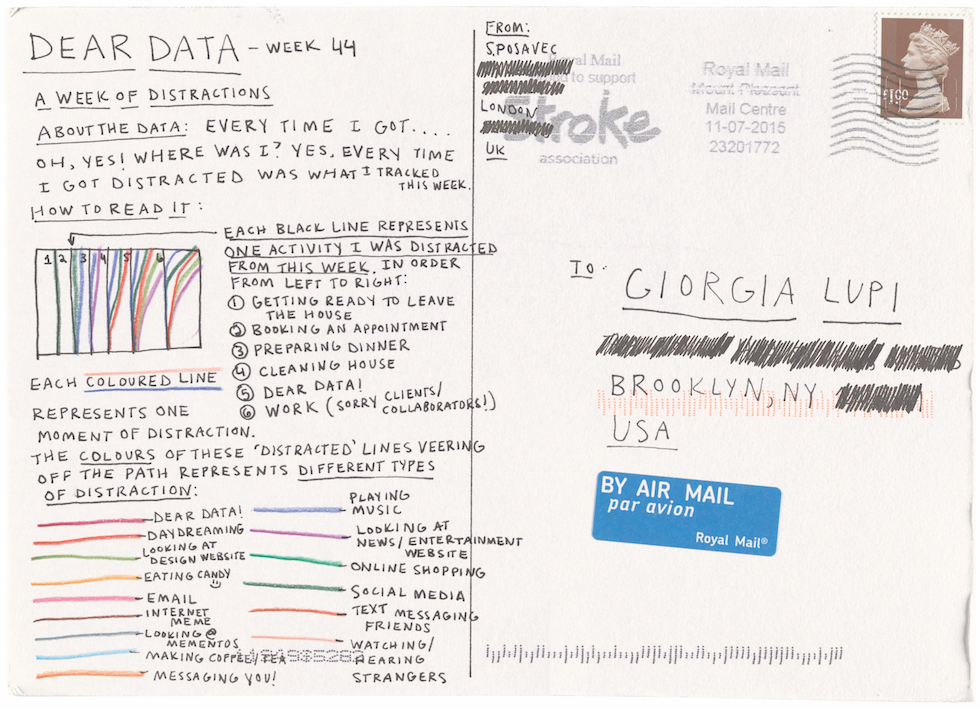 DEAR DATA - WEEK 44
A WEEK OF DISTRACTIONS
ABOUT THE DATA: EVERY TIME I GOT....
OH, YES! WHERE WAS I? YES, EVERY TIME
I GOT DISTRACTED WAS WHAT I TRACKED
THIS WEEK.
HOW TO READ IT:
1 2 3 4 5 6
EACH BLACK LINE REPRESENTS
ONE ACTIVITY I WAS DISTRACTED
FROM THIS WEEK. IN ORDER
FROM LEFT TO RIGHT:
① GETTING READY TO LEAVE
THE HOUSE
② BOOKING AN APPOINTMENT
③ PREPARING DINNER
④ CLEANING HOUSE
⑤ DEAR DATA!
⑥ WORK (SORRY CLIENTS/
COLLABORATORS!)
EACH COLOURED LINE
REPRESENTS ONE
MOMENT OF DISTRACTION.
THE COLOURS OF THESE 'DISTRACTED' LINES VEERING
OFF THE PATH REPRESENTS DIFFERENT TYPES
OF DISTRACTION:
DEAR DATA!
DAYDREAMING
LOOKING AT
DESIGN WEBSITE
EATING CANDY
EMAIL
INTERNET
MEME
LOOKING @
MEMENTOS
MAKING COFFEE/TEA
MESSAGING YOU!
PLAYING
MUSIC
LOOKING AT
NEWS/ENTERTAINMENT
WEBSITE
ONLINE SHOPPING
SOCIAL MEDIA
TEXT MESSAGING
FRIENDS
WATCHING/
HEARING
STRANGERS
FROM:
S.POSAVEC
LONDON
UK
Royal Mail
to support
Stroke
association
Royal Mail
Mount Pleasant
Mail Centre
11-07-2015
23201772
£1.00
TO:
GIORGIA LUPI
BROOKLYN, NY
USA
BY AIR MAIL
par avion
Royal Mail®